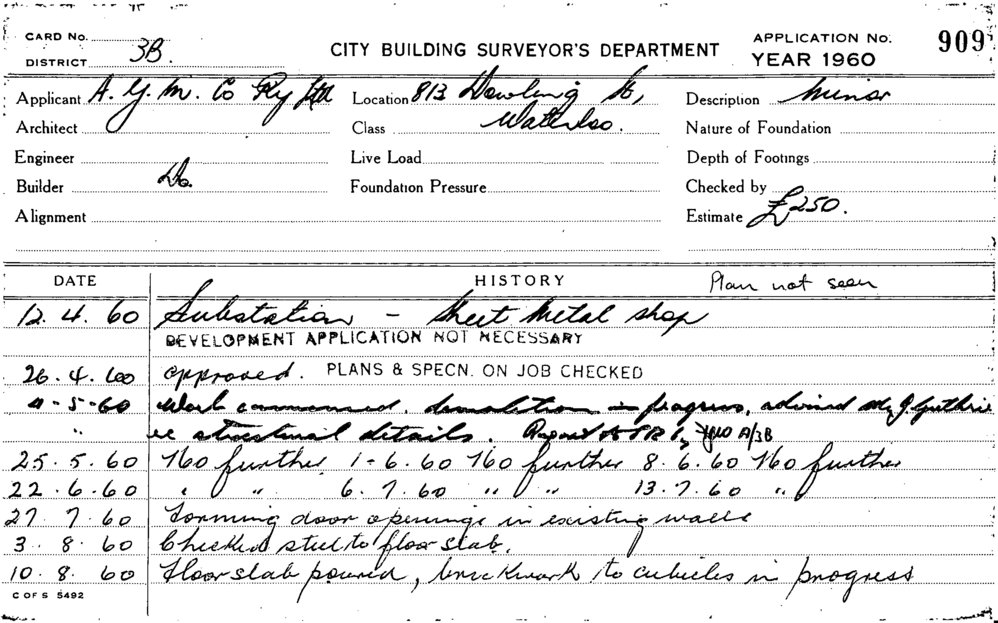 CARD No.
DISTRICT 3B
CITY BUILDING SURVEYOR'S DEPARTMENT
APPLICATION No. 909
YEAR 1960
Applicant A. G. M. Co Pty Ltd Location 813 Dowling St, Description Minor
Architect Class Waterloo. Nature of Foundation
Engineer Live Load Depth of Footings
Builder Do. Foundation Pressure Checked by
Alignment Estimate £250.
DATE HISTORY Plan not seen
12. 4. 60 Substation - Sheet Metal shop
DEVELOPMENT APPLICATION NOT NECESSARY
26. 4. 60 approved. PLANS & SPECN. ON JOB CHECKED
4-5-60 Work commenced. demolition in progress, advised Mr J. Guthrie
" re structural details. A/3B
25. 5. 60 No further 1-6.60 No further 8.6.60 No further
22.6.60 " " 6.7.60 " " 13.7.60 " "
27. 7. 60 Forming door openings in existing walls
3. 8. 60 Checked steel to floor slab.
10. 8. 60 Floor slab poured, brickwork to cubicles in progress
C OF S 5492